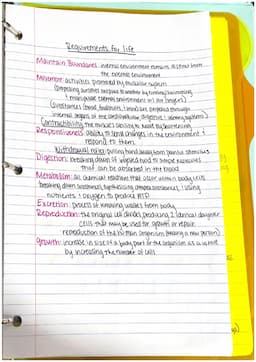 Requirements for life
Maintain Boundaries: internal environment remains distinct from
the external environment
Movement: activities promoted by muscular system
(propelling ourselves one place to another by running/swimming
+ manipulate external environment w/ our fingers)
(substances (blood, foodstuffs, urine) are propelled through
internal organs of the cardiovascular, digestive + urinary systems)
Contractibility: the muscle's ability to move by shortening
Responsiveness: ability to sense changes in the environment +
respond to them
Withdrawal reflex: pulling hand away from painful stimulus
Digestion: breaking down of ingested food to simple molecules
that can be absorbed in the blood
Metabolism: all chemical reactions that occur within body cells
breaking down substances, synthesizing complex substances, using
nutrients + oxygen to produce ATP
Excretion: process of removing wastes from body
Reproduction: the original cell divides, producing 2 identical daughter
cells that may be used for growth or repair
reproduction of the human organism (making a new person)
Growth: increase in size of a body part or the organism as a whole
by increasing the number of cells